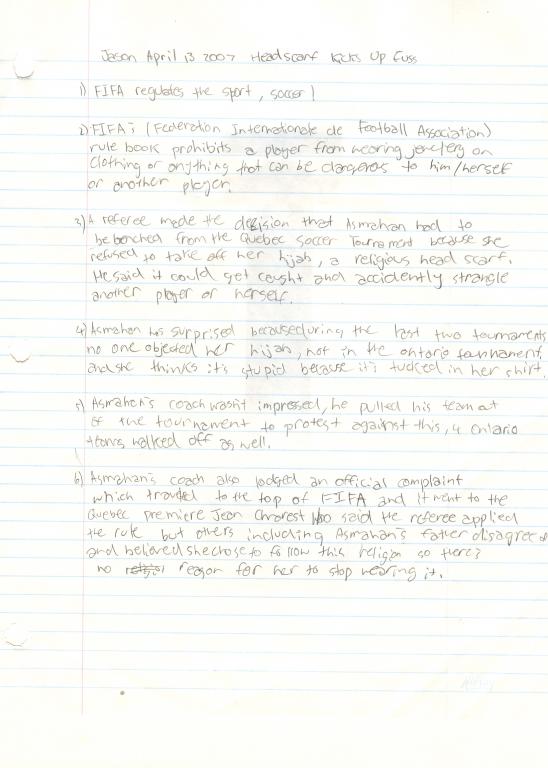 Jason April 13 2007 Headscarf Kicks Up Fuss
1) FIFA regulates the sport, soccer!
2) FIFA's (Federation Internationale de Football Association)
rule book prohibits a player from wearing jewlery on
clothing or anything that can be dangeros to him/herself
or another player.
3) A referee made the decision that Asmahan had to
be benched from the Quebec Soccer Tournament because she
refused to take off her hijab, a religious head scarf.
He said it could get caught and accidently strangle
another player or herself.
4) Asmahan was surprised because during the last two tournaments
no one objected her hijab, not in the ontario tournament,
and she thinks it's stupid because it's tucked in her shirt.
5) Asmahan's coach wasn't impressed, he pulled his team out
of the tournament to protest against this, 4 Ontario
teams walked off as well.
6) Asmahan's coach also lodged an official complaint
which traveled to the top of FIFA and it went to the
Quebec premiere Jean Charest who said the referee applied
the rule but others including Asmahan's father disagreed
and believed she chose to follow this religion so there's
no reason for her to stop wearing it.